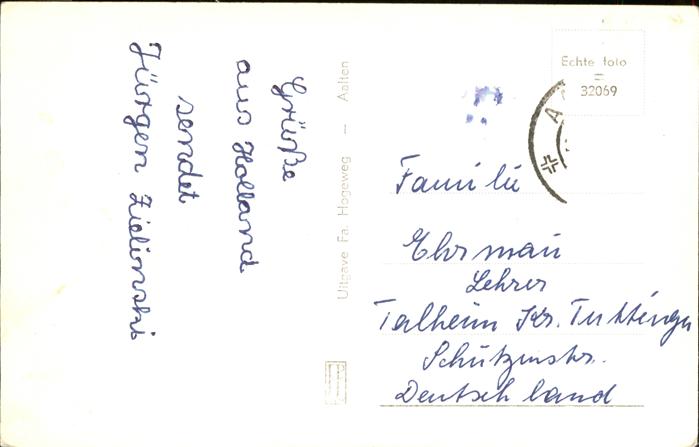 Grüße
aus Holland
sendet
Jürgen Zielinski
Uitgave Fa. Hogeweg — Aalten
Echte foto
=
32069
A
Familie
Ehrmann
Lehrer
Talheim Kr. Tuttlingen
Schützenstr.
Deutschland